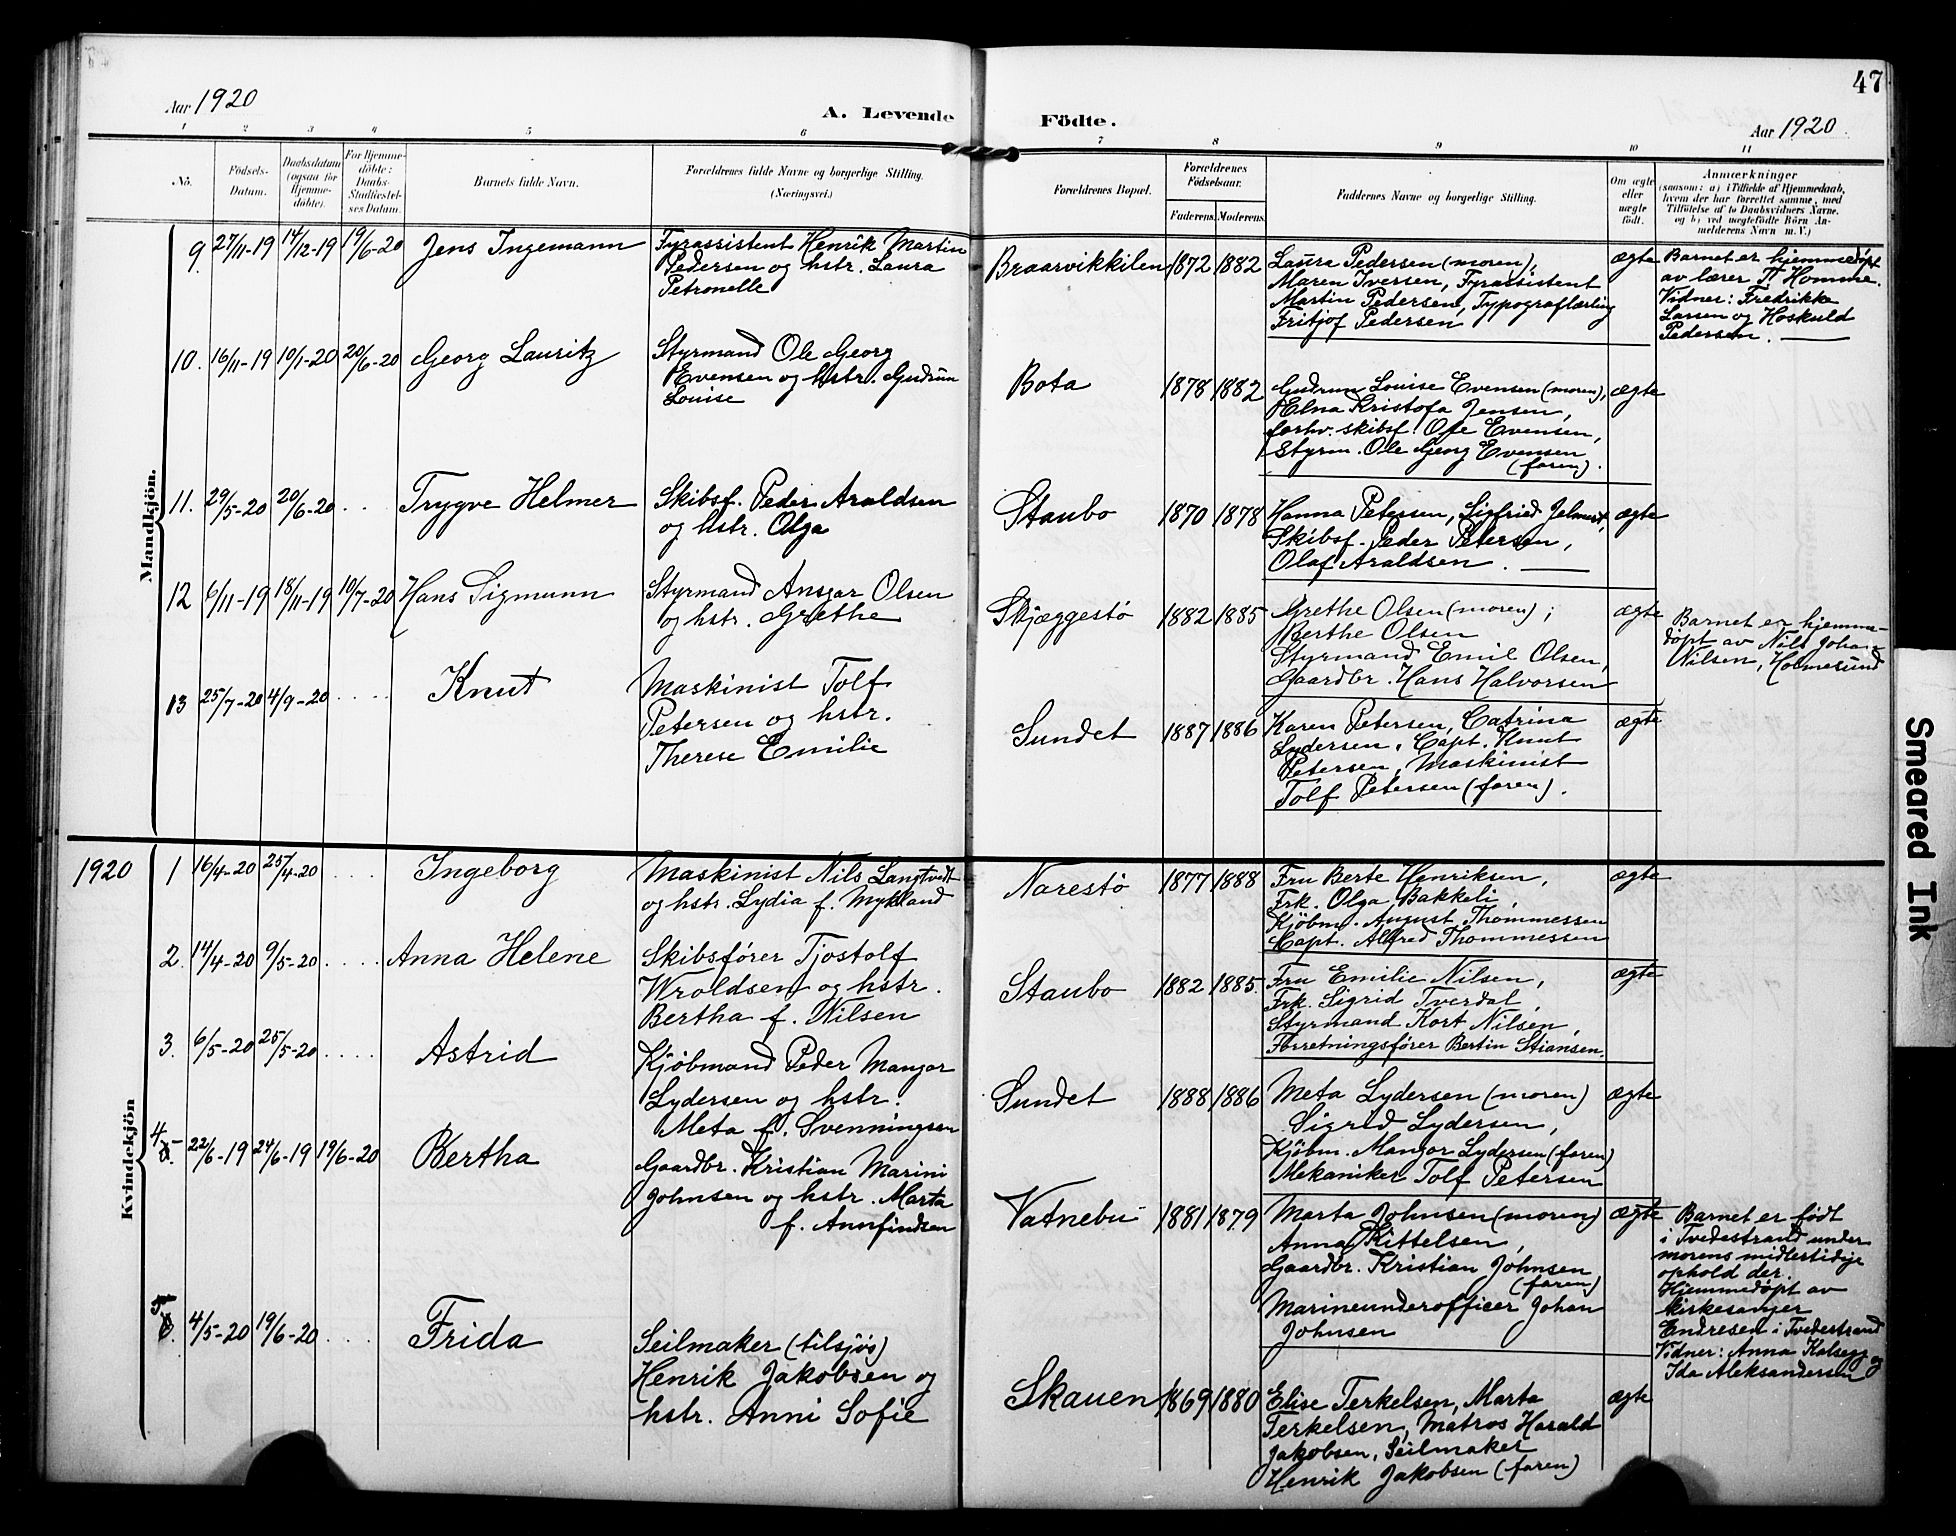 47
Aar 1920
A. Levende
Födte.
Aar 1920
1 2 3 4 5 6 7 8 9 10 11
No.
Födsels-
Datum.
Daabsdatum
(ogsaa for
Hjemme-
döbte).
For Hjemme-
döbte:
Daabs-
Stadfæstel-
ses Datum.
Barnets fulde Navn.
Forældrenes fulde Navne og borgerlige Stilling.
(Næringsvei.)
Forældrenes Bopæl.
Forældrenes
Födselsaar.
Faderens. Moderens.
Faddernes Navne og borgerlige Stilling.
Om ægte
eller
uægte
födt.
Anmærkninger
(saasom: a) i Tilfælde af Hjemmedaab,
hvem der har forrettet samme, med
Tilföielse af to Daabsvidners Navne.
og b) ved uægtefödte Börn An-
melderens Navn m. V.)
Mandkjön.
9. 27/11-19 14/12-19 19/6-20 Jens Ingemann
Fyrassistent Henrik Martin
Pedersen og hstr. Laura
Petronelle
Braarvikkilen 1872 1882
Laura Pedersen (moren),
Maren Iversen, Fyrassistent
Martin Pedersen, Typograflærling
Fritjof Pedersen
ægte
Barnet er hjemmedøpt
av lærer T. Homme.
Vidner: Fredrikke
Larsen og Hoskuld
Pedersen.
10. 16/11-19 10/1-20 20/6-20 Georg Lauritz
Styrmand Ole Georg
Evensen og hstr. Gudrun
Louise
Bota 1878 1882
Gudrun Louise Evensen (moren),
Elna Kristofa Jensen,
forhv. skibsf. Ole Evensen,
Styrm. Ole Georg Evensen
(faren).
ægte
11. 29/5-20 20/6-20 . . Trygve Helmer
Skibsf. Peder Araldsen
og hstr. Olga
Staubo 1870 1878
Hanna Petersen, Sigfried Jelmert,
Skibsf. Peder Petersen,
Olaf Araldsen.
ægte
12 6/11-19 18/11-19 10/7-20 Hans Sigmunn
Styrmand Ansgar Olsen
og hstr. Grethe
Skjæggestø 1882 1885
Grethe Olsen (moren);
Berthe Olsen
Styrmand Emil Olsen,
Gaardbr. Hans Halvorsen
ægte
Barnet er hjemme-
døpt av Nils Johan
Nilsen, Holmesund
13 25/7-20 4/9-20 . . . . Knut
Maskinist Tolf
Petersen og hstr.
Therese Emilie
Sundet 1887 1886
Karen Petersen, Catrina
Lydersen, Capt. Knut
Petersen, Maskinist
Tolf Petersen (faren).
ægte
1920
Kvindekjön
1 16/4-20 25/4-20 . . . . Ingeborg
Maskinist Nils Langtvedt
og hstr. Lydia f. Mykland
Narestø 1877 1888
Fru Berte Henriksen,
Frk. Olga Bakkeli,
Kjøbm. August Thommessen
Capt. Alfred Thommessen
ægte
2. 14/4-20 9/5-20 . . . . Anna Helene
Skibsfører Tjostolf
Wroldsen og hstr.
Bertha f. Nilsen
Staubo 1882 1885.
Fru Emilie Nilsen,
Frk. Sigrid Tverdal,
Styrmand Kort Nilsen,
Forretningsfører Bertin Stiansen.
ægte
3. 6/5-20 25/5-20 . . . . Astrid
Kjöbmand Peder Mangor
Lydersen og hstr.
Meta f. Svenningsen
Sundet 1888 1886
Meta Lydersen (moren)
Sigrid Lydersen,
Kjöbm. Mangor Lydersen (faren)
Mekaniker Tolf Petersen
ægte
4. 22/6-19 24/6-19 19/6-20 Bertha
Gaardbr. Kristian Marini
Johnsen og hstr. Marta
f. Annfindsen
Vatnebu 1881 1879
Marta Johnsen (moren)
Anna Kittelsen,
Gaardbr. Kristian Johnsen
(faren)
Marineunderofficer Johan
Johnsen
ægte
Barnet er født
i Tvedestrand under
morens midlertidige
ophold der.
Hjemmedøpt av
kirkesanger
Endresen i Tvedestrand
Vidner: Anna Kalsegg og
Ida Aleksandersen
5. 4/5-20 19/6-20 . . . Frida
Seilmaker (tilsjøs)
Henrik Jakobsen og
hstr. Anni Sofie
Skauen 1869 1880
Elise Terkelsen, Marta
Terkelsen, Matros Harald
Jakobsen, Seilmaker
Henrik Jakobsen (faren)
ægte
Smeared Ink